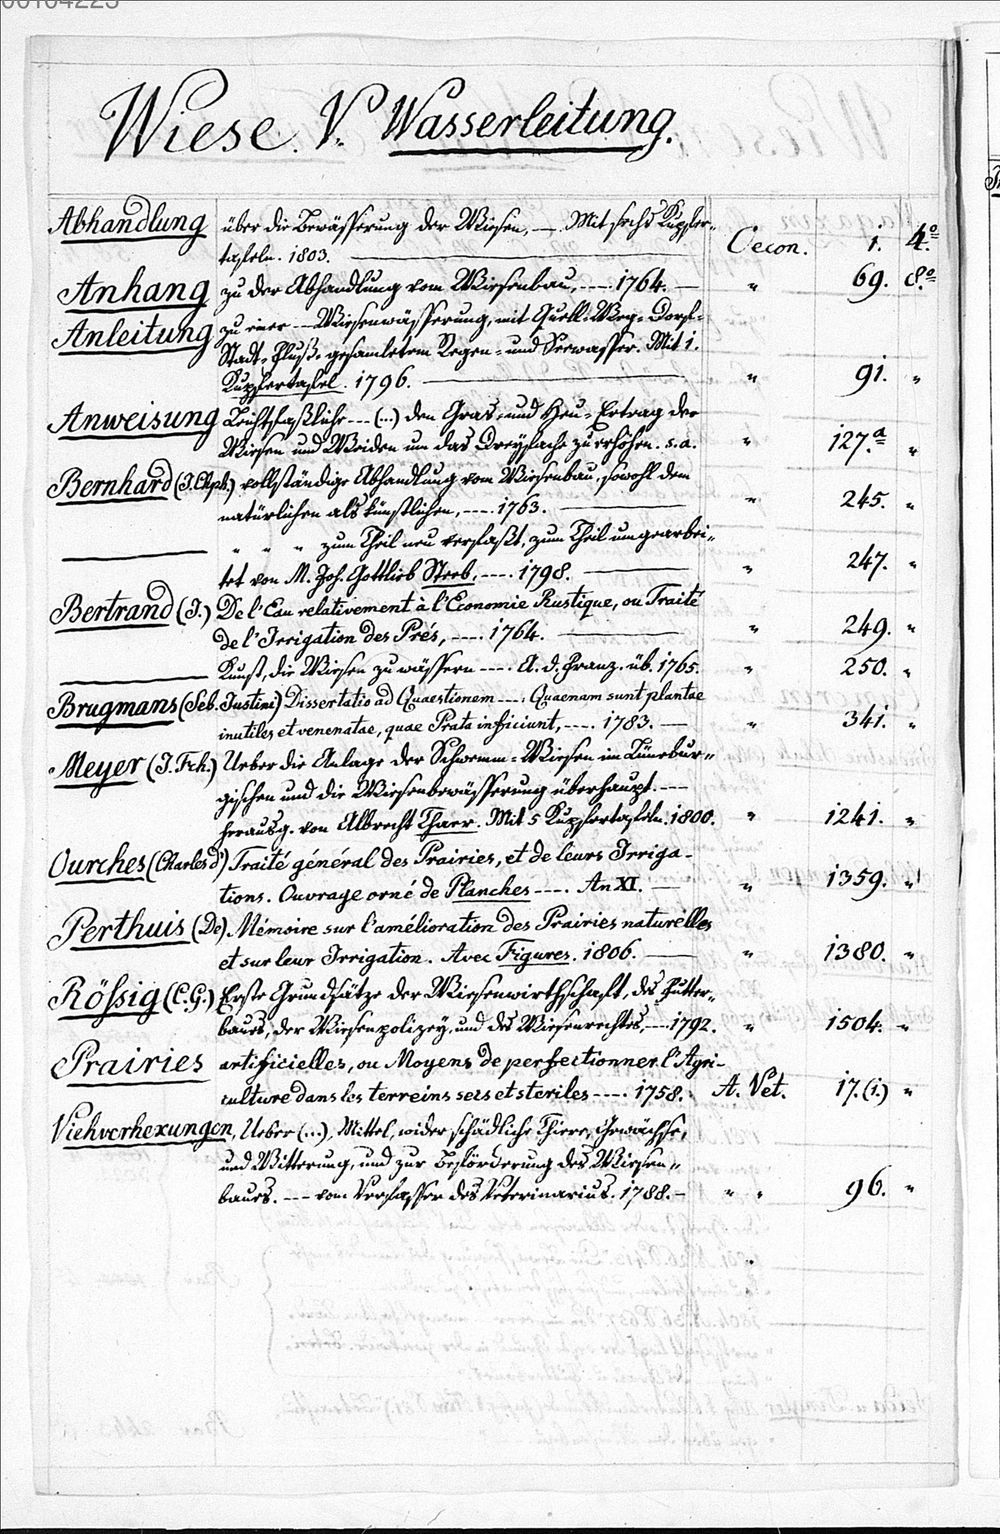 00104223
Wiese. V. Wasserleitung.
Abhandlung über die Bewässerung der Wiesen, — Mit sechs Kupfer-
tafeln. 1803. — Oecon. 1. 4.º
Anhang zu der Abhandlung vom Wiesenbau, --- 1764. — " 69. 8.º
Anleitung zu einer -- Wiesenwässerung, mit Quell- Weg- Dorf-
Stadt- Fluß- gesamletem Regen- und Seewasser. Mit 1.
Kupfertafel. 1796. — " 91. "
Anweisung Leichtfaßliche --- (...) den Gras- und Heu-Ertrag der
Wiesen und Weiden um das Dreyfache zu erhöhen. s. a. " 127.ª "
Bernhard (J. Chph.) vollständige Abhandlung vom Wiesenbau, sowohl dem
natürlichen als künstlichen, --- 1763. — " 245. "
— " " " zum Theil neu verfaßt, zum Theil umgearbei-
tet von M. Joh. Gottlieb Steeb, --- 1798. — " 247. "
Bertrand (J.) De l'Eau relativement à l'Economie Rustique, ou Traité
de l'Irrigation des Prés, --- 1764. — " 249. "
— Kunst, die Wiesen zu wässern --- A. d. Franz. üb. 1765. " 250. "
Brugmans (Seb. Justini) Dissertatio ad Quaestionem --- Quaenam sunt plantae
inutiles et venenatae, quae Prata inficiunt, --- 1783. — " 341. "
Meyer (J. Frh.) Ueber die Anlage der Schwemm-Wiesen im Lünebur-
gischen und die Wiesenbewässerung überhaupt. ---
herausg. von Albrecht Thaer. Mit 5 Kupfertafeln. 1800. " 1241. "
Ourches (Charles d') Traité général des Prairies, et de leurs Irriga-
tions. Ouvrage orné de Planches --- An XI. — " 1359. "
Perthuis (De) Mémoire sur l'amélioration des Prairies naturelles
et sur leur Irrigation. Avec Figures. 1806. — " 1380. "
Rößig (C. G.) Erste Grundsätze der Wiesenwirthschaft, des Futter-
baues, der Wiesenpolizey, und des Wiesenrechtes, --- 1792. " 1504. "
Prairies artificielles, ou Moyens de perfectionner l'Agri-
culture dans les terreins secs et steriles --- 1758. A. Vet. 17.(1.) "
Viehverhexungen, Ueber (...), Mittel, wider schädliche Thiere, Gewächse,
und Witterung, und zur Beförderung des Wiesen-
baues. --- vom Verfasser des Veterinarius. 1788. — " " 96. "